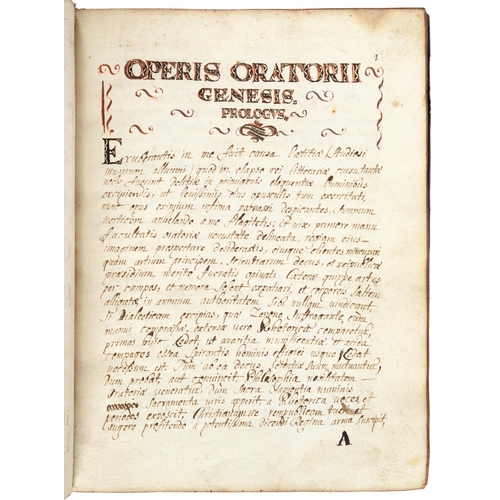 1
OPERIS ORATORII
GENESIS.
PROLOGVS,
Exuberantis in me fuit causa lætitiæ (studiosi
musarum alumni) quod in elapso rei litterariæ consultandæ
vobis fuerint delitiæ in primigenis eloquentiæ fluminibus
excipiendis, et levissimis eius opusculis tum exercitati,
nunc opus eximium infima parnassi despicantes, summum
verticem anhelando a me flagitetis; et vix primere manu
facultatis oratoriæ venustate delineata, regiam eius
imaginem prospectare desiderastis, eiusque clientes
quam artium principem, scientiarum decus, et reipublicæ
præsidium merito fueratis opinati. Cæteræ quippe artes
per campos, et nemora solent expatiari, et corporis saltem
alligatæ in animum authoritatem sibi nullam vindicant.
Si Dialecticam excipias, quæ Zenone suffragante, cum
manui compræssæ, extensæ vero Rhetorica comparetur,
primas huic cedet ut avaritia munificentiæ et arida
compages ossea spirantis hominis effigiei usque cedat
necessum est. Tum ad ea decus,
Dum probat aut convincit, Philosophia nobilitatem
Oratoriæ veneratur. Dum sacra sapientia
Sacramenta viris apperit, a Rhetorica voces, et
periodos exposcit, Christianamque rempublicam
augere profitendo a potentissima dicendi Regina arma suscipit,
A